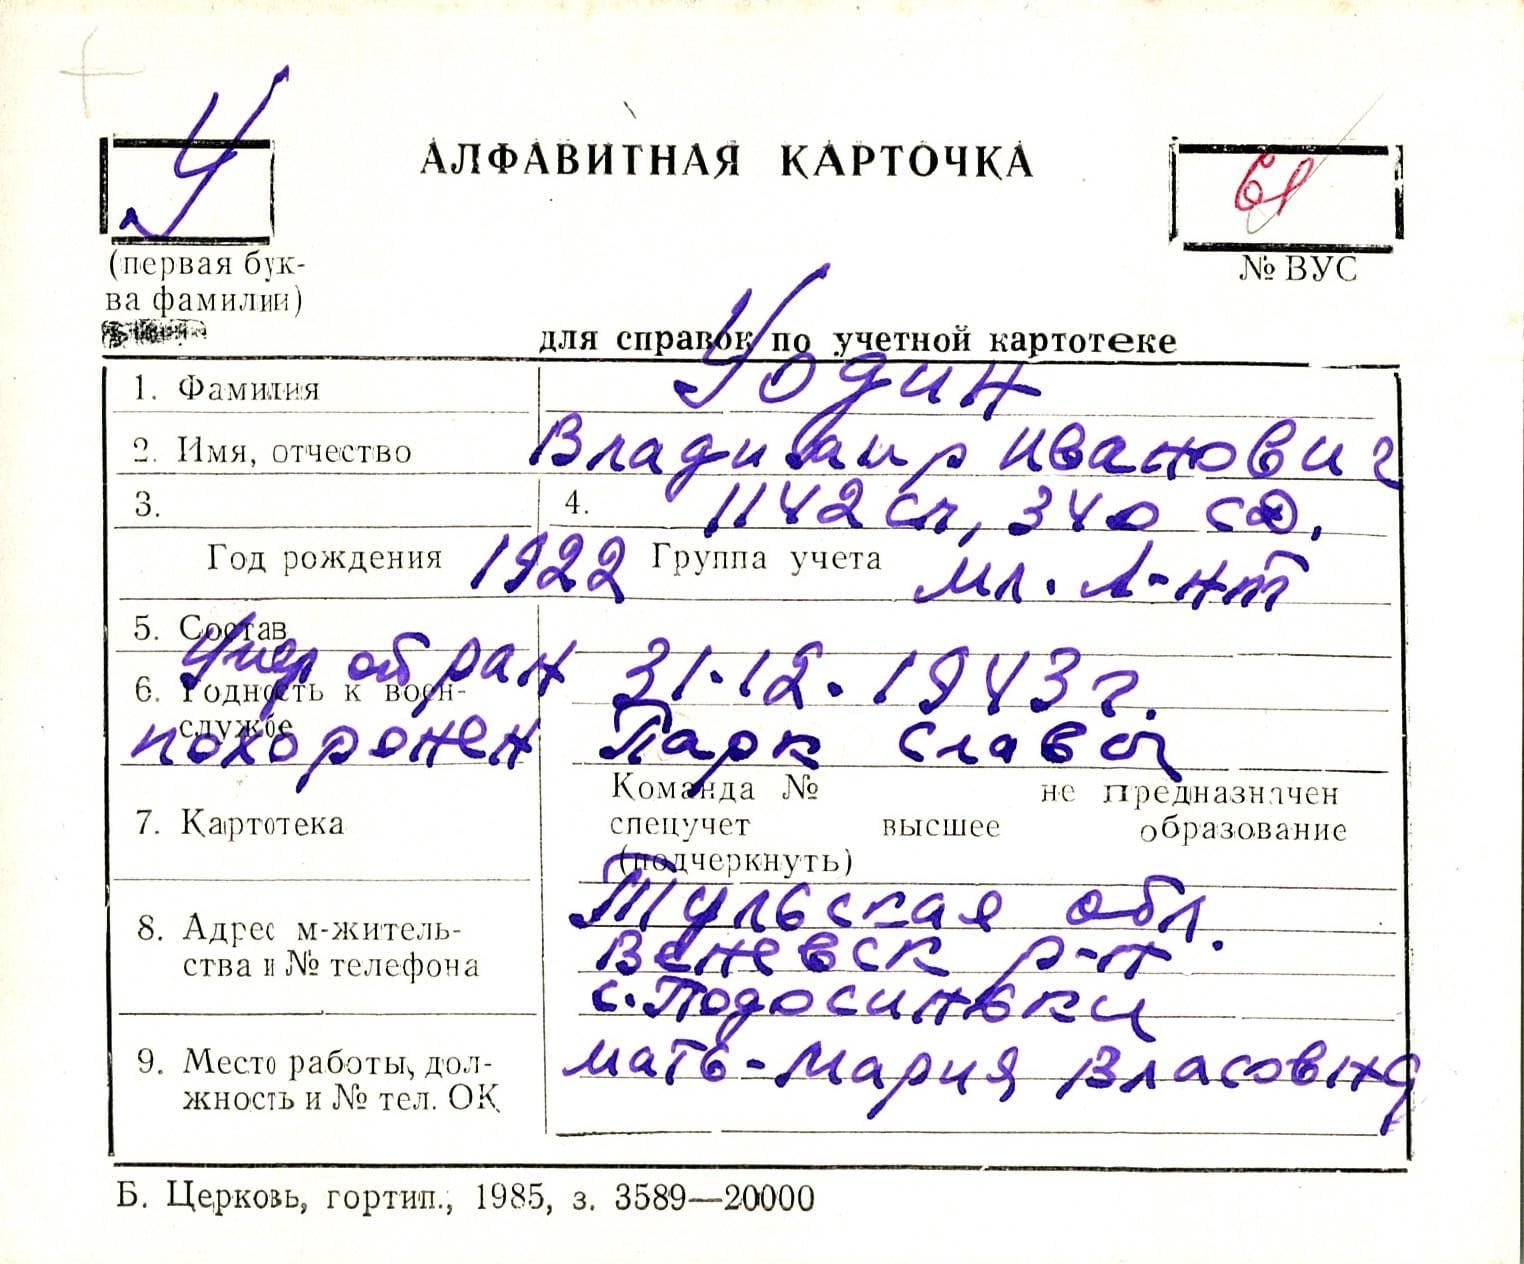 У
АЛФАВИТНАЯ КАРТОЧКА
61
(первая бук-
ва фамилии)
№ ВУС
для справок по учетной картотеке
1. Фамилия Уодин
2. Имя, отчество Владимир Иванович
3. 4. 1142 сп, 340 сд,
Год рождения 1922 Группа учета мл. л-нт
5. Состав
Умер от ран 31.12.1943 г.
6. Годность к воен-
службе
похоронен Парк Славы
Команда № не предназначен
7. Картотека спецучет высшее образование
(подчеркнуть)
Тульская обл.
8. Адрес м-житель-
ства и № телефона
Веневск р-н
с. Подосиновки
9. Место работы, дол-
жность и № тел. ОК
мать - Мария Власовна
Б. Церковь, гортип., 1985, з. 3589—20000